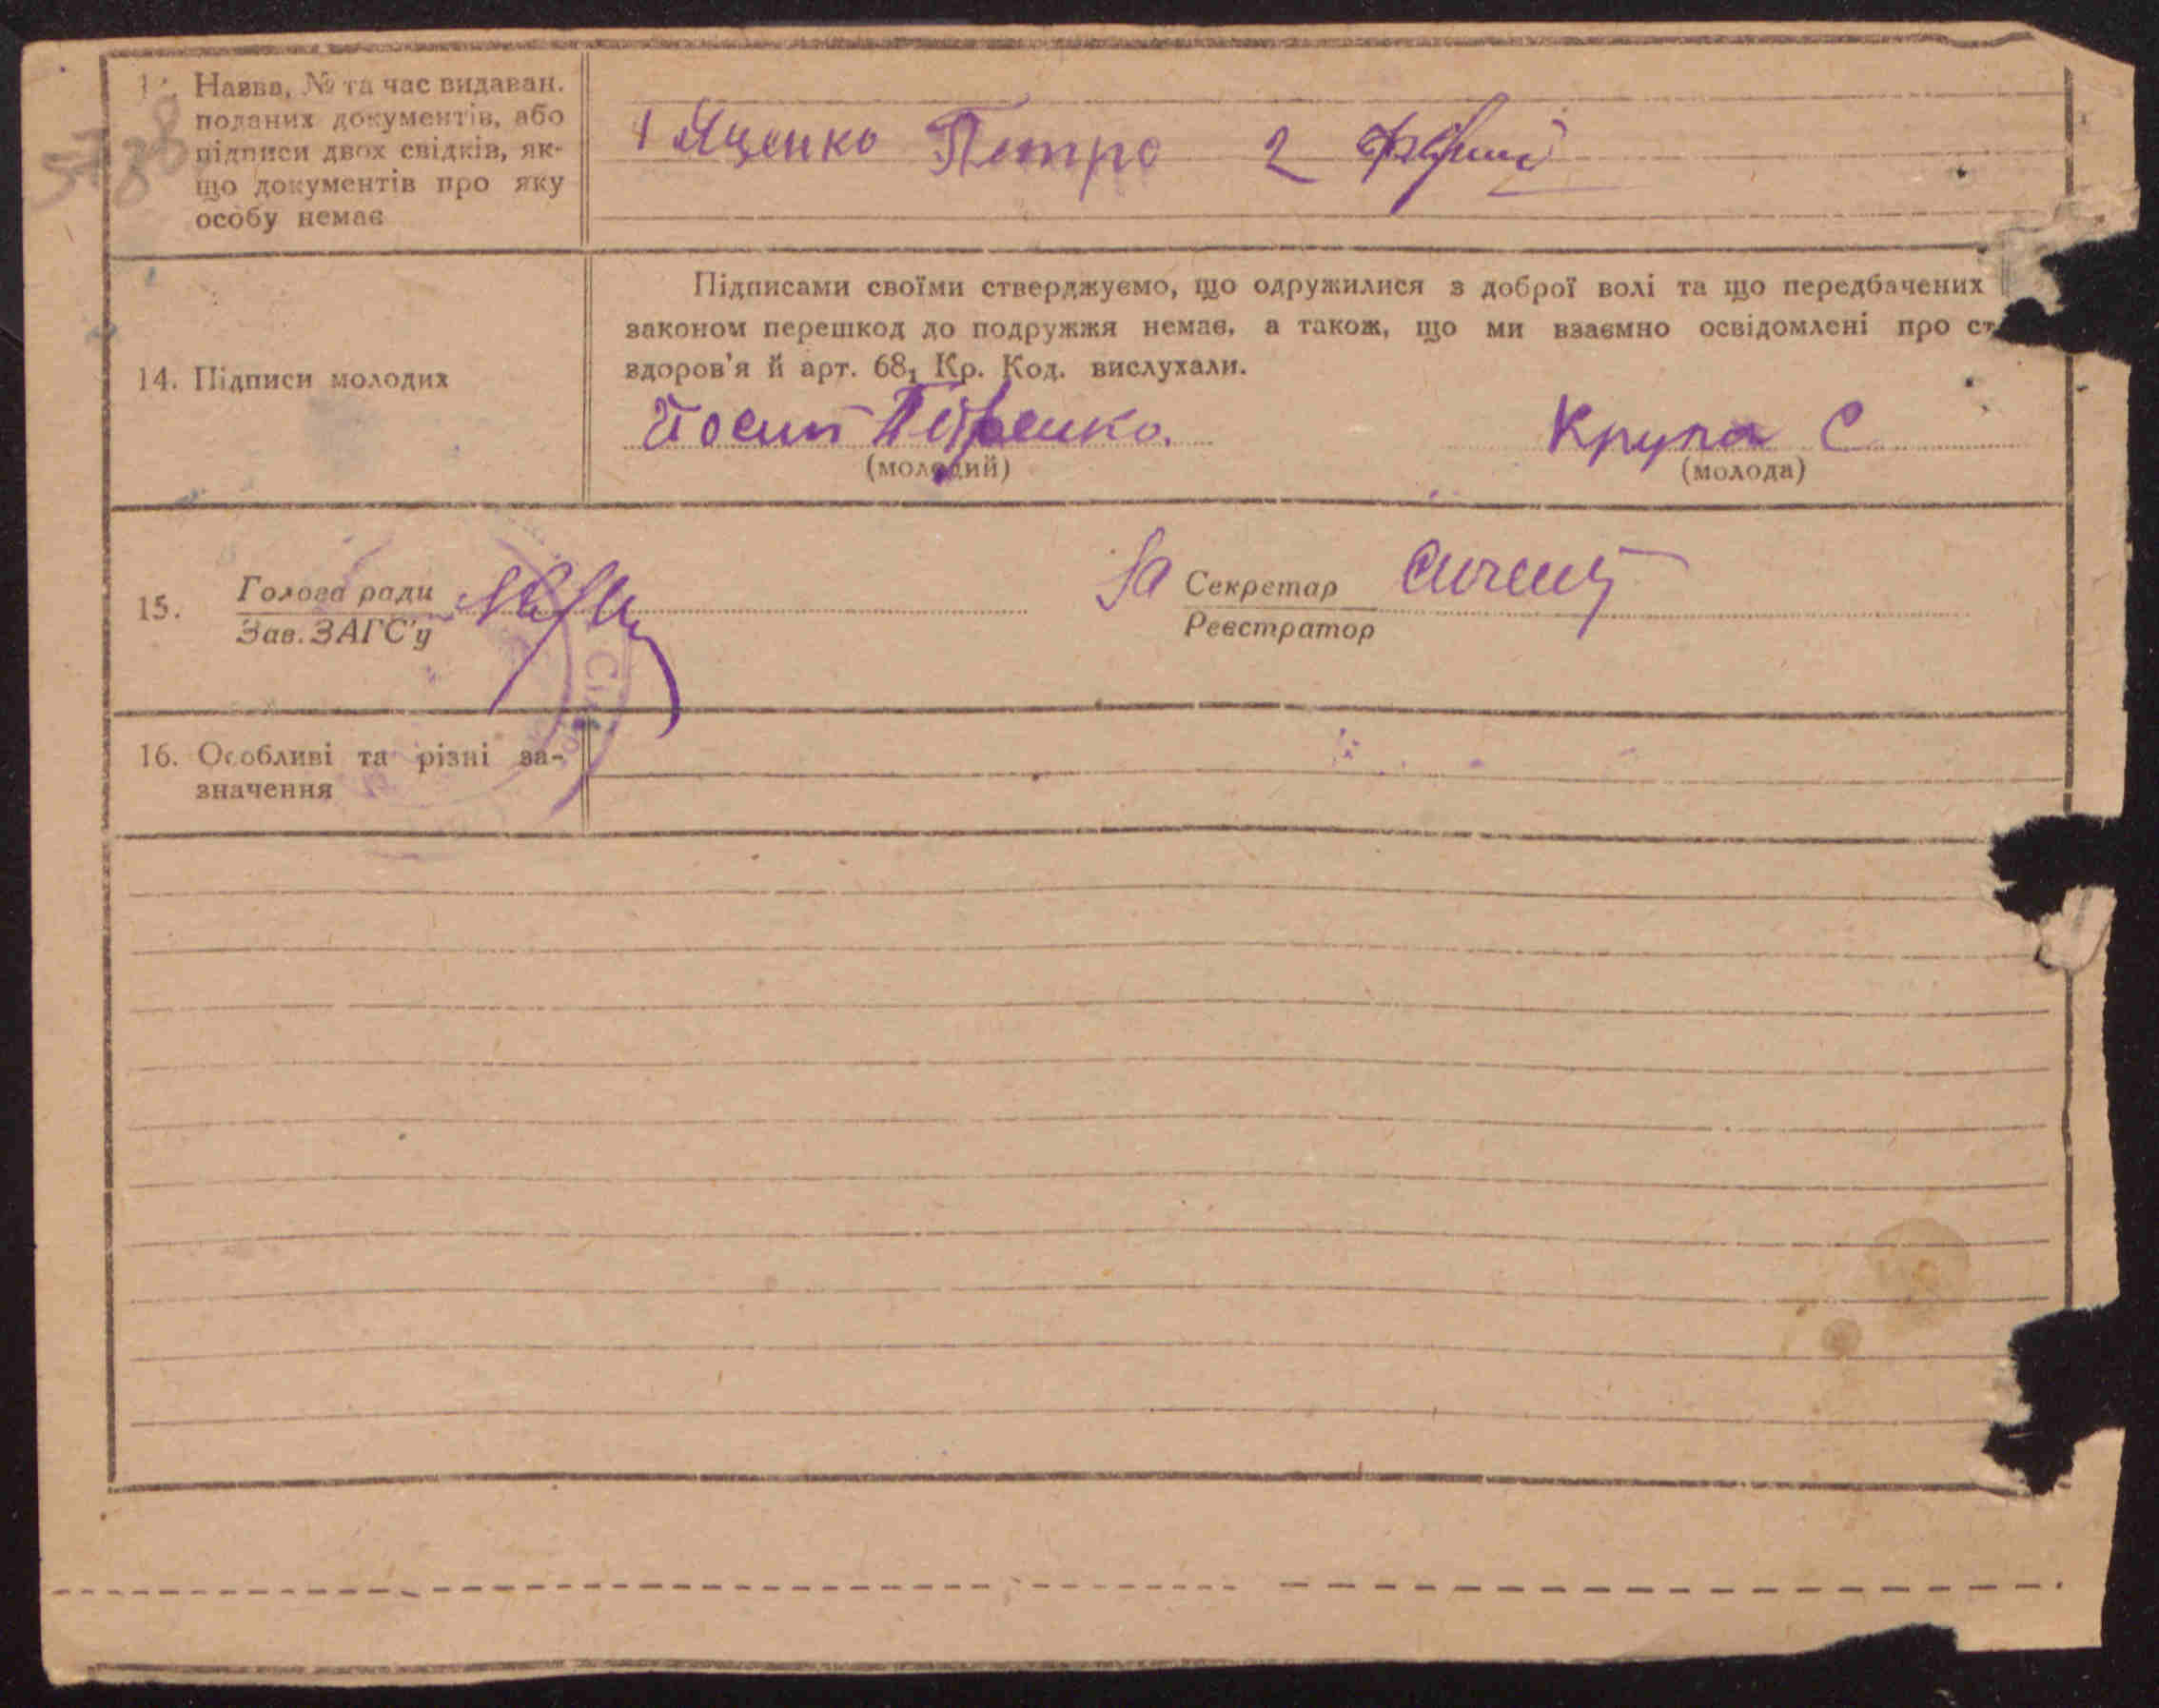 Назва, № та час видаван.
поданих документів, або
підписи двох свідків, як-
що документів про яку
особу немає
1 Яценко Петро 2
14. Підписи молодих
Підписами своїми стверджуємо, що одружилися з доброї волі та що передбачених
законом перешкод до подружжя немає, а також, що ми взаємно освідомлені про ст
здоров'я й арт. 68₁ Кр. Код. вислухали.
Йосип Петренко. Крупа С
(молодий) (молода)
15. Голова ради За Секретар
Зав. ЗАГС'у Реєстратор
16. Особливі та різні за-
значення